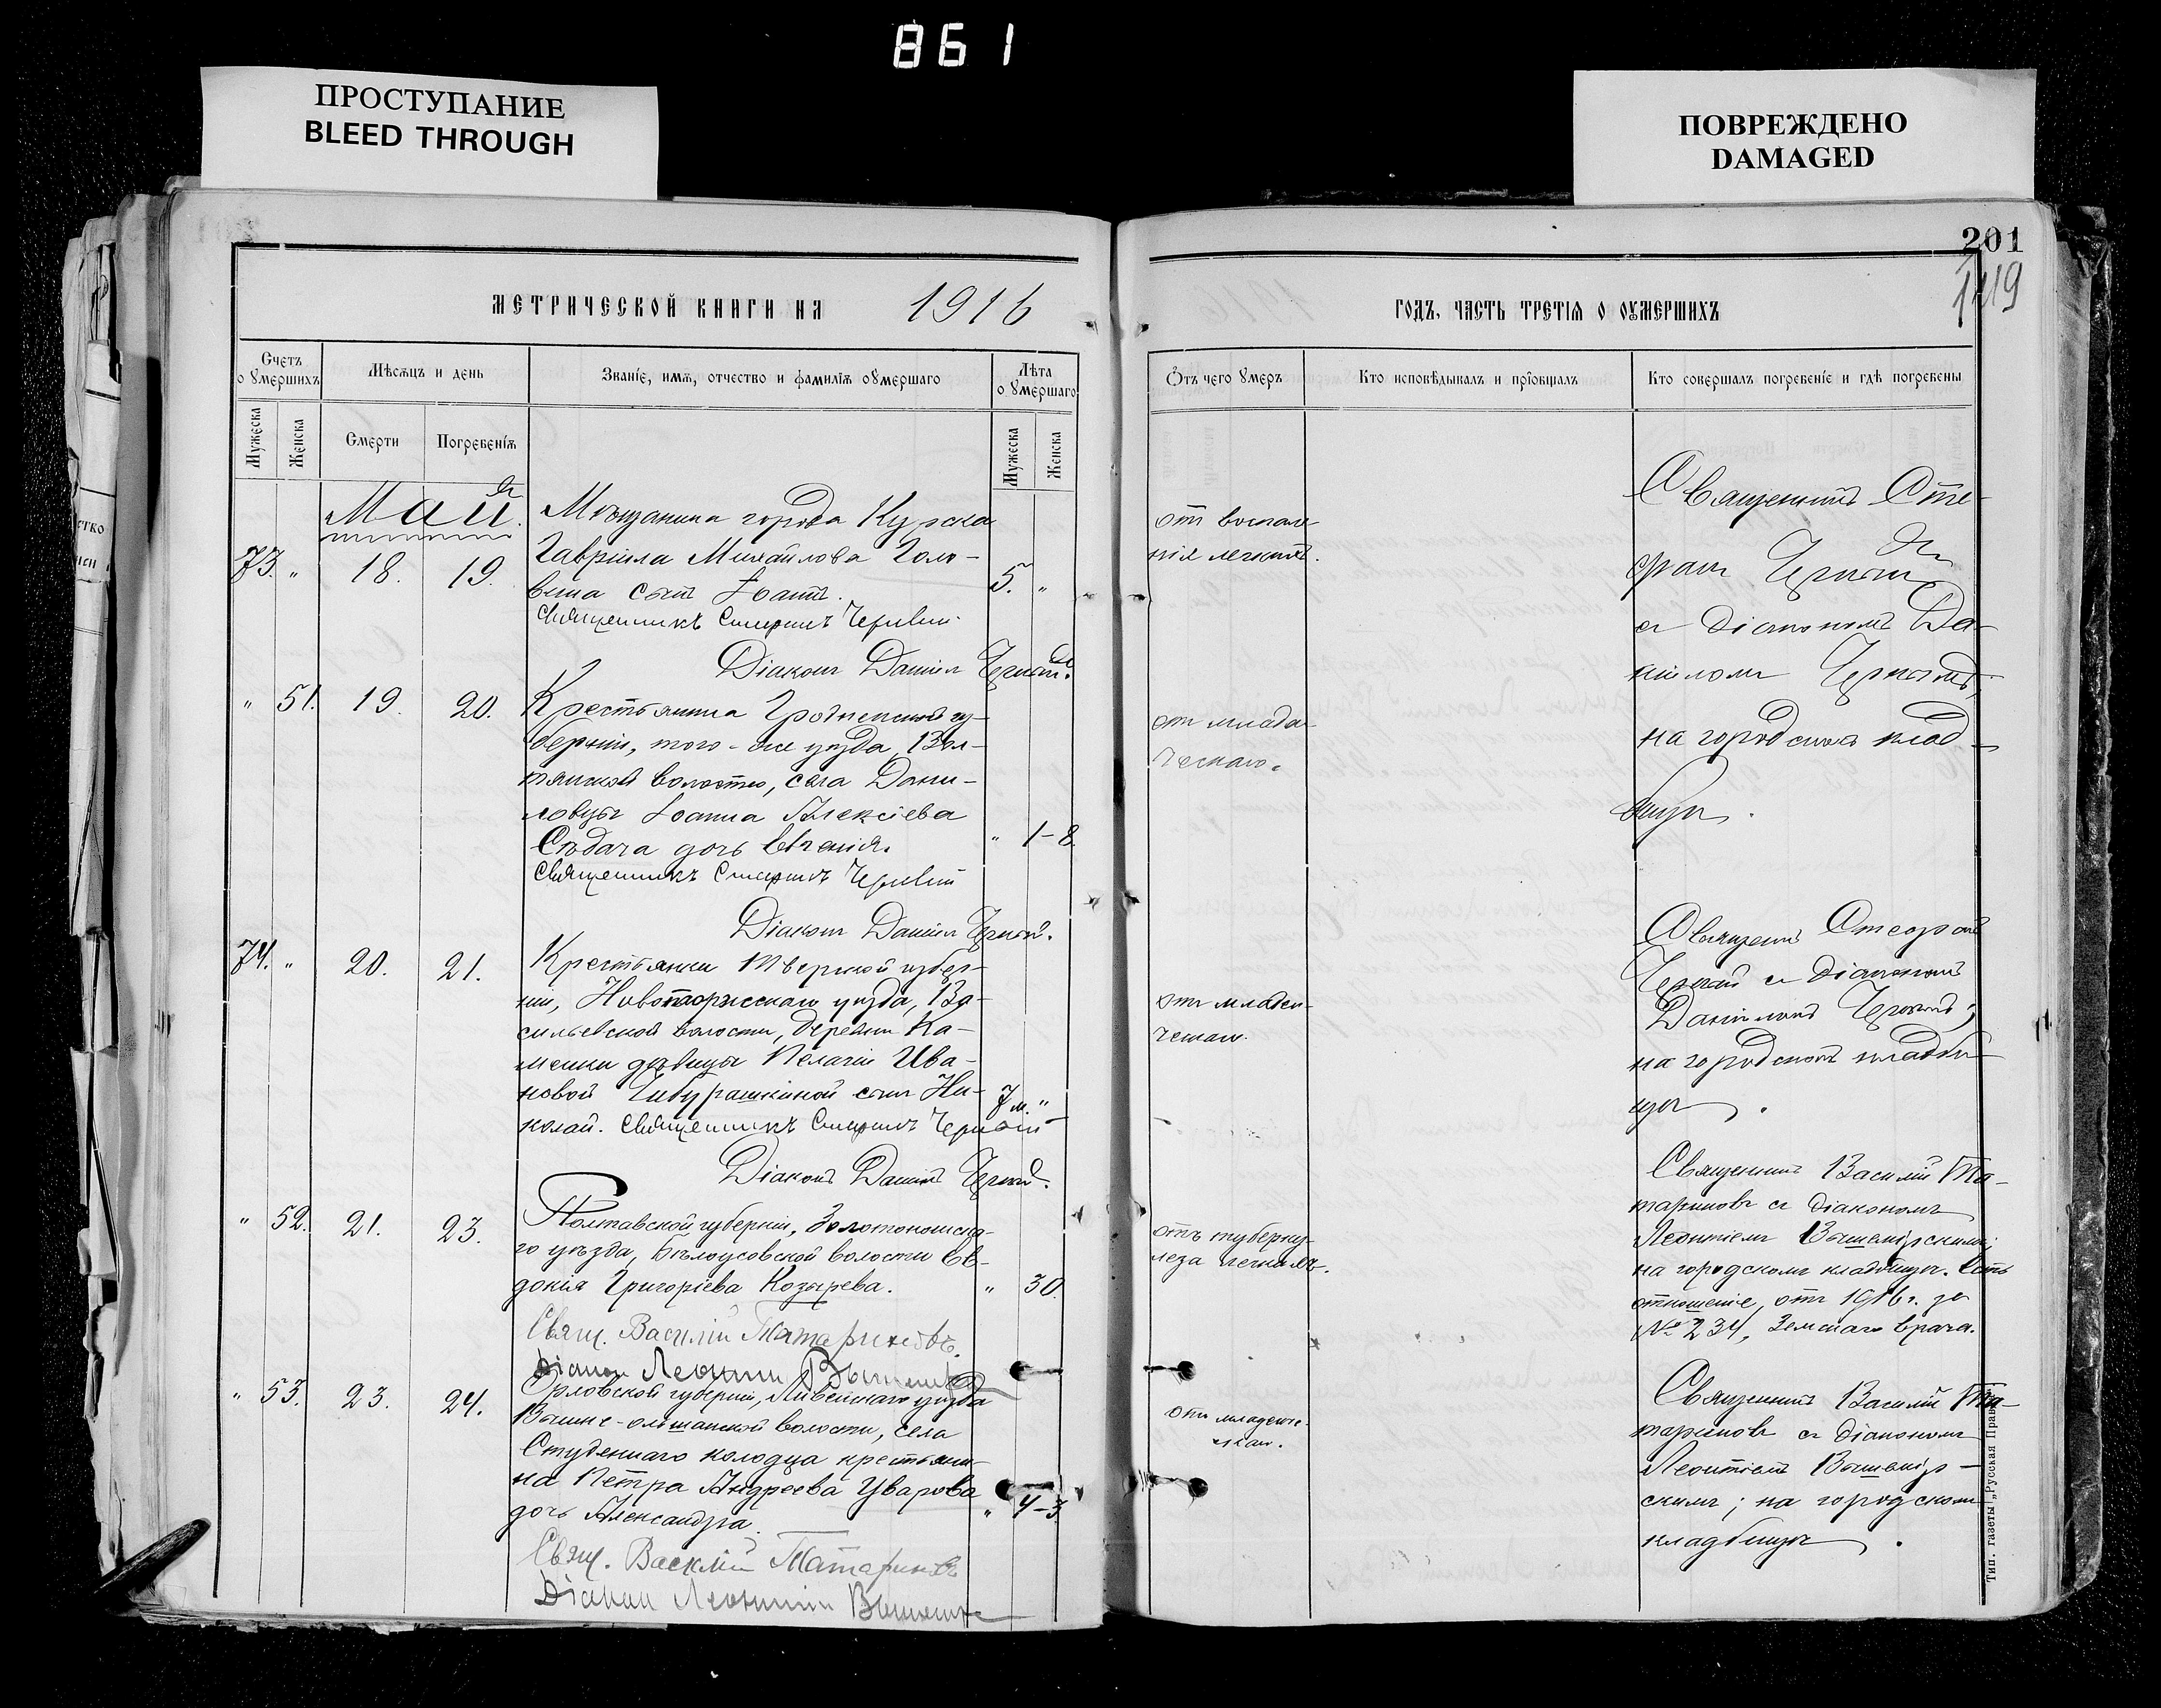 861
ПРОСТУПАНИЕ
BLEED THROUGH
ПОВРЕЖДЕНО
DAMAGED
201
1419
МЕТРИЧЕСКОЙ КНИГИ НА 1916
ГОДЪ, ЧАСТЬ ТРЕТІЯ О ОУМЕРШИХЪ
Счетъ о умершихъ
Мѣсяцъ и день
Званіе, имя, отчество и фамилія оумершаго
Лѣта оумершаго
Отъ чего умеръ
Кто исповѣдывалъ и пріобщалъ
Кто совершалъ погребеніе и гдѣ погребены
Мужеска
Женска
Смерти
Погребенія
Мужеска
Женска
Май.
73. " 18. 19.
Мѣщанина города Курска
Гавріила Михайлова Голо-
вина сынъ Іоаннъ.
5. "
Священникъ Стефанъ Черный.
Діаконъ Даніилъ Черный.
отъ воспале-
нія легкихъ.
Священникъ Сте-
фанъ Черный
съ діакономъ Да-
ніиломъ Чернымъ,
на городскомъ клад-
бищѣ.
" 51. 19. 20.
Крестьянина Гродненской гу-
берніи, того-же уѣзда,
волости, села Дани-
ловцы Іоанна Алексіева
дочь Евгенія.
" 1-8.
Священникъ Стефанъ Черный
Діаконъ Даніилъ Черный.
отъ младен-
ческаго.
74. " 20. 21.
Крестьянки Тверской губер-
ніи, Новоторжскаго уѣзда, Ва-
сильевской волости, деревни Ка-
менки дѣвицы Пелагіи Ива-
новой Чибурашкиной сынъ Ни-
колай.
7 м. "
Священникъ Стефанъ Черный
Діаконъ Даніилъ Черный.
отъ младен-
ческаго.
Священникъ Стефанъ
Черный съ діакономъ
Даніиломъ Чернымъ;
на городскомъ кладби-
щѣ.
" 52. 21. 23.
Полтавской губерніи, Золотоношска-
го уѣзда, Бѣлоусовской волости Ев-
докія Григоріева Козырева.
" 30.
Свящ. Василій Татариновъ.
Діакон Леонтій
отъ туберку-
леза легкихъ.
Священникъ Василій Та-
тариновъ съ діакономъ
Леонтіемъ Вышемірскимъ;
на городскомъ кладбищѣ. Есть
отношеніе, отъ 1916 г. за
№ 234, Земскаго врача.
" 53. 23. 24.
Орловской губерніи, Ливенскаго уѣзда
Вышне-ольшанской волости, села
Студенаго колодца крестьяни-
на Петра Андреева Уварова
дочь Александра.
" 4-3.
Свящ. Василій Татариновъ
Діакон Леонтій
отъ младенче-
скаго.
Священникъ Василій Та-
тариновъ съ діакономъ
Леонтіемъ Вышемір-
скимъ; на городскомъ
кладбищѣ.
Тип. газеты „Русская Правда